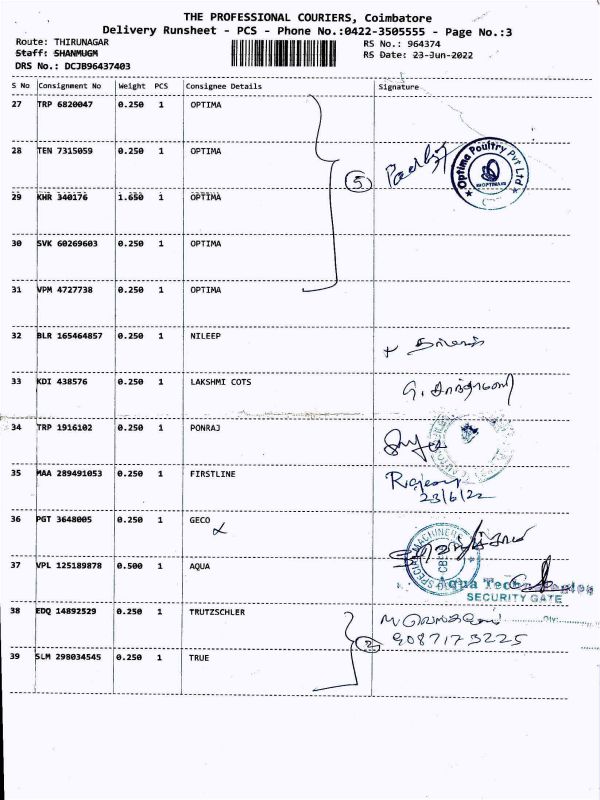 THE PROFESSIONAL COURIERS, Coimbatore
Delivery Runsheet - PCS - Phone No.:0422-3505555 - Page No.:3
Route: THIRUNAGAR RS No.: 964374
Staff: SHANMUGM RS Date: 23-Jun-2022
DRS No.: DCJB96437403
S No Consignment No Weight PCS Consignee Details Signature
27 TRP 6820047 0.250 1 OPTIMA
28 TEN 7315059 0.250 1 OPTIMA
Optima Poultry Pvt Ltd
5
29 KHR 340176 1.650 1 OPTIMA
30 SVK 60269603 0.250 1 OPTIMA
31 VPM 4727738 0.250 1 OPTIMA
32 BLR 165464857 0.250 1 NILEEP
33 KDI 438576 0.250 1 LAKSHMI COTS
34 TRP 1916102 0.250 1 PONRAJ
35 MAA 289491053 0.250 1 FIRSTLINE
23/6/22
36 PGT 3648005 0.250 1 GECO
37 VPL 125189878 0.500 1 AQUA
SPECIAL MACHINERY
Aqua
SECURITY GATE
38 EDQ 14892529 0.250 1 TRUTZSCHLER
2 9087173225
39 SLM 298034545 0.250 1 TRUE